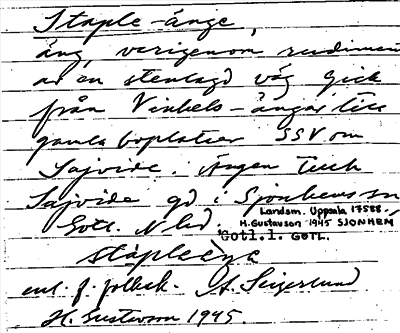 Staple-änge,
äng, varigenom rudimen
av en stenlagd väg gick
från Vinbels-ängar till
gamla boplatser SSV om
Sajvide. Ängen tillh
Sajvide gd i Sjonhems sn
Gotl. N hd.
Landsm. Uppsala 17588.
H. Gustavson 1945 SJONHEM
Gotl. l. GOTL.
stapleäŋa
enl. f. folksk.
H. Gustavson 1945.